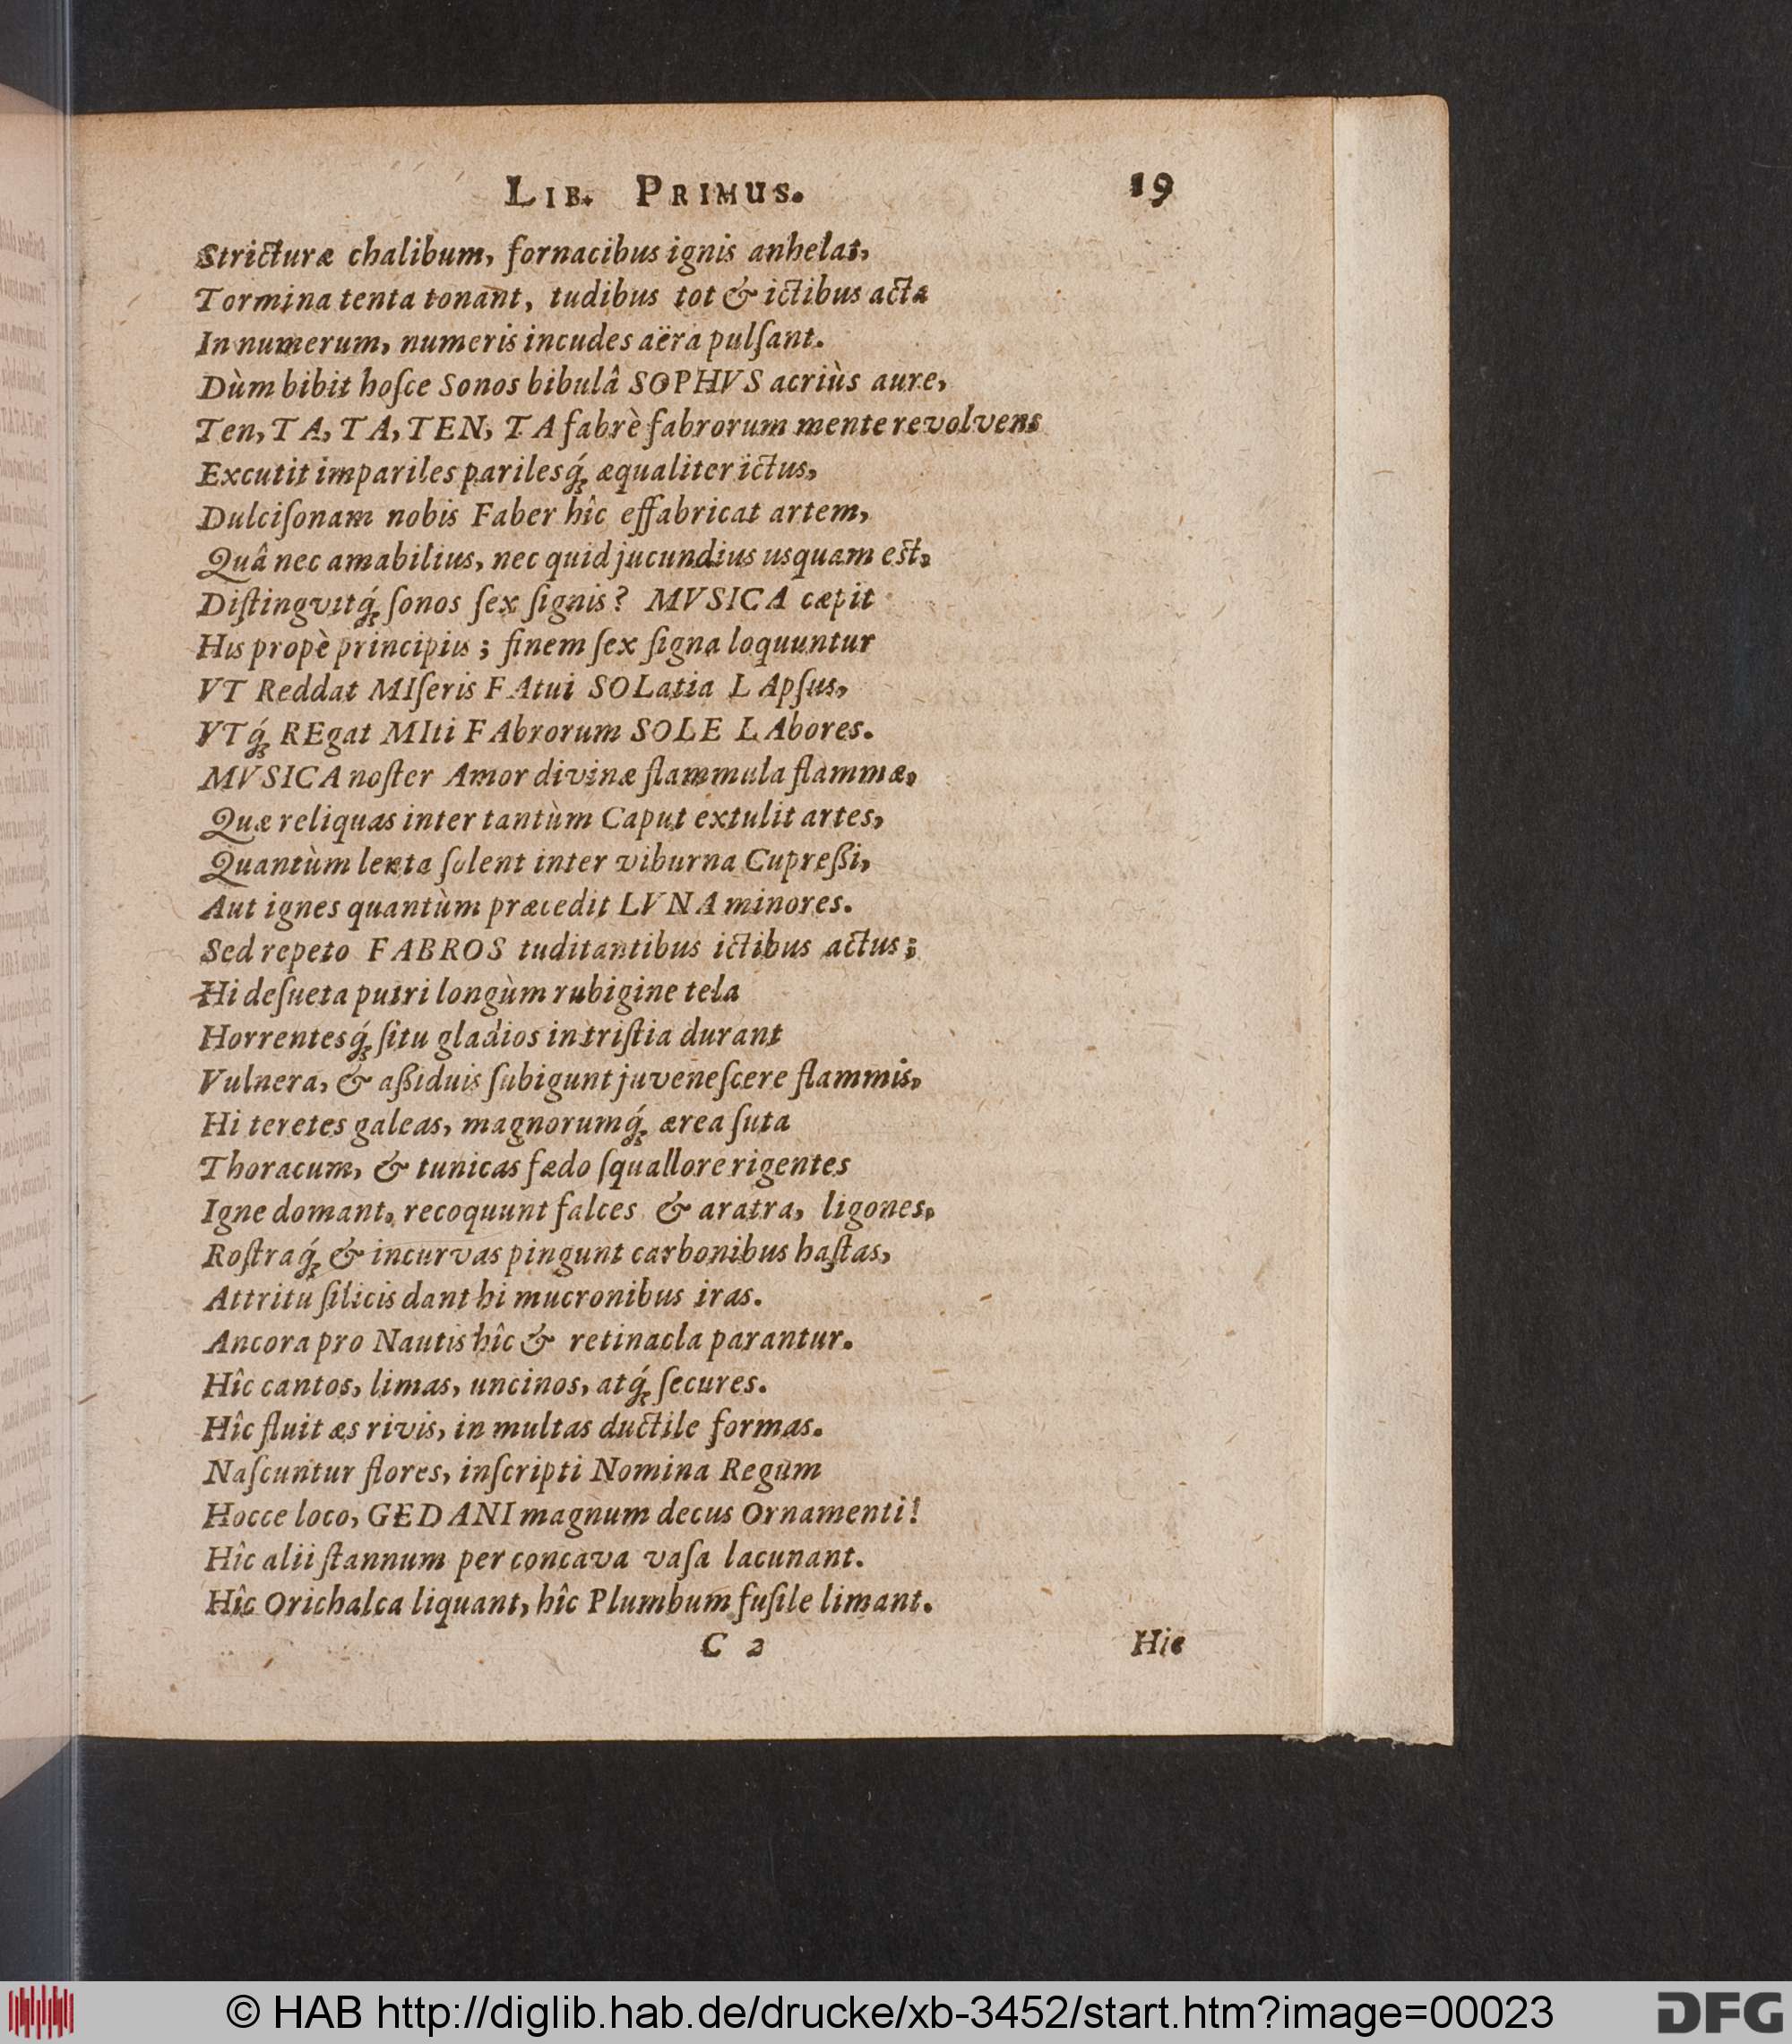 LIB. PRIMUS. 19
Stricturæ chalibum, fornacibus ignis anhelat,
Tormina tenta tonant, tudibus tot & ictibus acta
In numerum, numeris incudes aëra pulſant.
Dùm bibit hoſce Sonos bibulâ SOPHVS acriùs aure,
Ten, TA, TA, TEN, TA fabrè fabrorum mente revolvens
Excutit impariles parilesq́; æqualiter ictus,
Dulciſonam nobis Faber hîc effabricat artem,
Quâ nec amabilius, nec quid jucundius usquam est,
Diſtingvitq́; ſonos ſex ſignis? MVSICA cæpit
His propè principiis; finem ſex ſigna loquuntur
VT Reddat MIſeris FAtui SOLatia LApſus,
VTq́; REgat MIti FAbrorum SOLE LAbores.
MVSICA noſter Amor divinæ flammula flammæ,
Quæ reliquas inter tantùm Caput extulit artes,
Quantùm lenta ſolent inter viburna Cupreßi,
Aut ignes quantùm præcedit LVNA minores.
Sed repeto FABROS tuditantibus ictibus actus;
Hi deſueta putri longùm rubigine tela
Horrentesq́; ſitu gladios in triſtia durant
Vulnera, & aßiduis ſubigunt juveneſcere flammis,
Hi teretes galeas, magnorumq́; ærea ſuta
Thoracum, & tunicas fædo ſquallore rigentes
Igne domant, recoquunt falces & aratra, ligones,
Roſtraq́; & incurvas pingunt carbonibus haſtas,
Attritu ſilicis dant hi mucronibus iras.
Ancora pro Nautis hîc & retinacla parantur.
Hîc cantos, limas, uncinos, atq́; ſecures.
Hîc fluit æs rivis, in multas ductile formas.
Naſcuntur flores, inſcripti Nomina Regum
Hocce loco, GEDANI magnum decus Ornamenti!
Hîc alii ſtannum per concava vaſa lacunant.
Hîc Orichalca liquant, hîc Plumbum fuſile limant.
C 2 Hic
© HAB http://diglib.hab.de/drucke/xb-3452/start.htm?image=00023
DFG